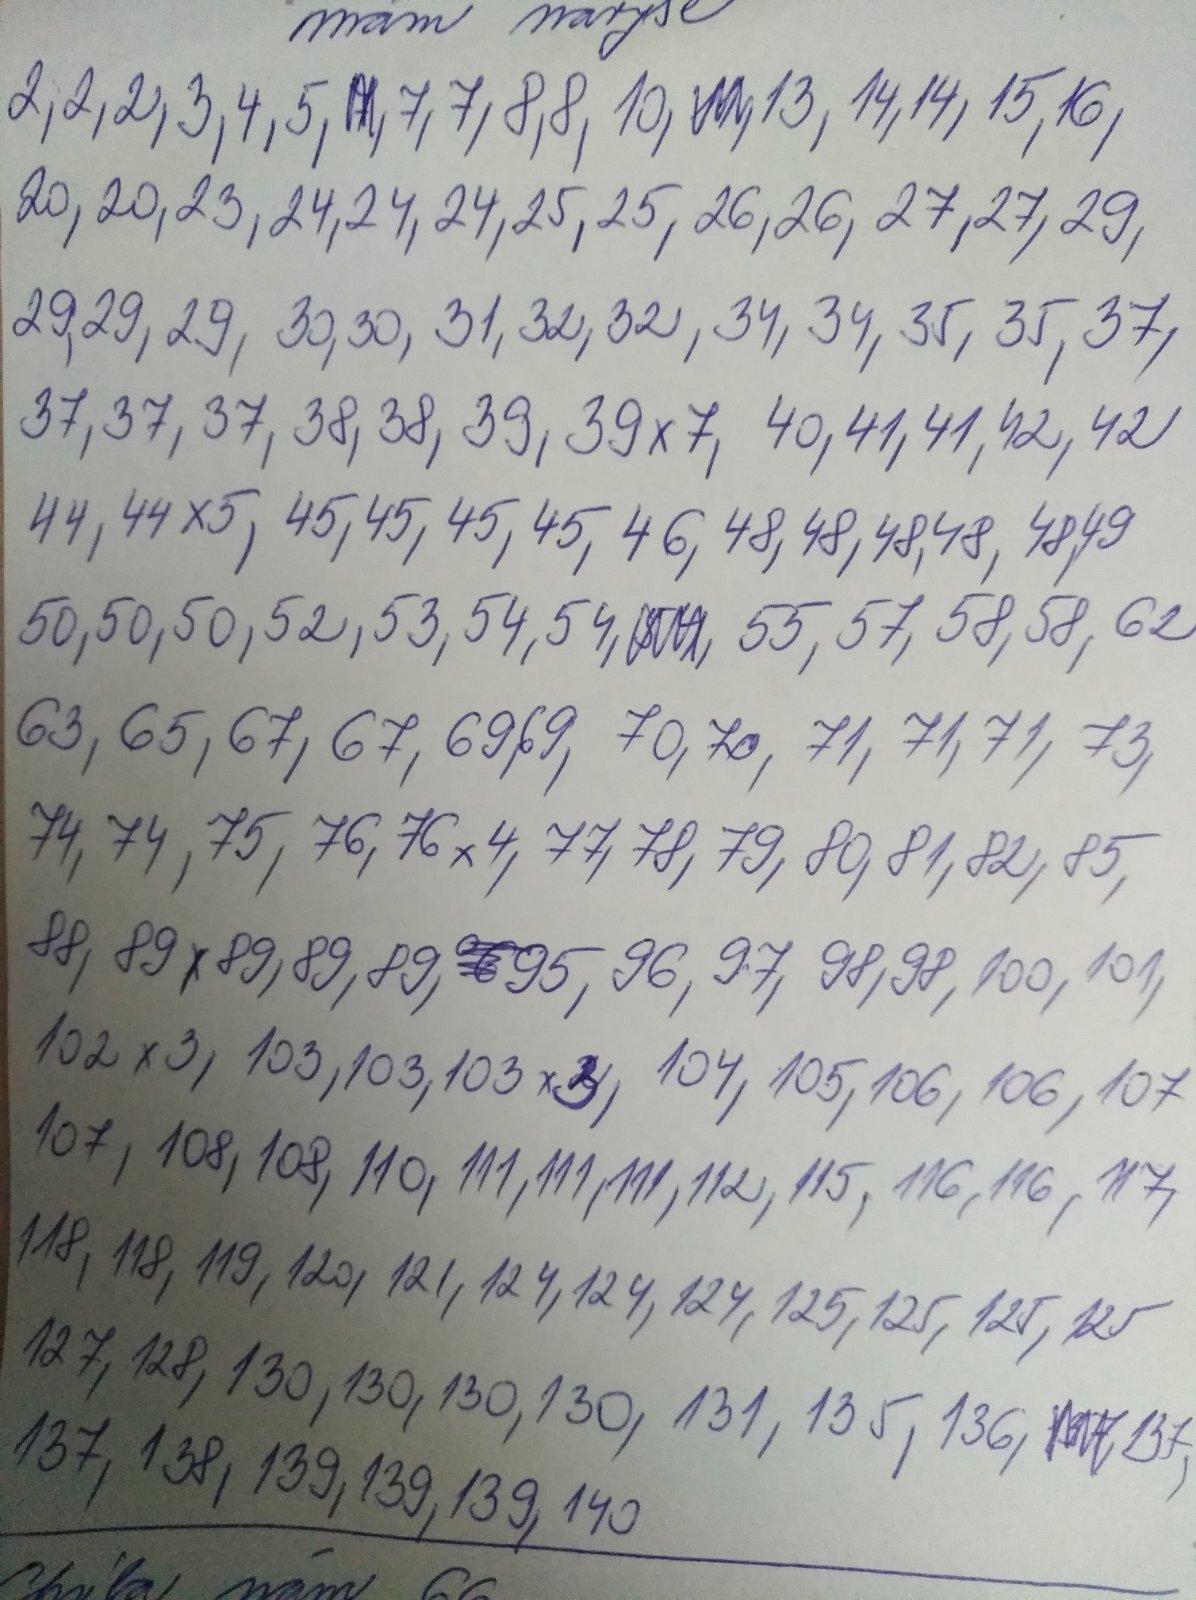 mám navyše
2, 2, 2, 3, 4, 5, 7, 7, 8, 8, 10, 13, 14, 14, 15, 16,
20, 20, 23, 24, 24, 24, 25, 25, 26, 26, 27, 27, 29,
29, 29, 29, 30, 30, 31, 32, 32, 34, 34, 35, 35, 37,
37, 37, 37, 38, 38, 39, 39 x 7, 40, 41, 41, 42, 42
44, 44 x 5, 45, 45, 45, 45, 46, 48, 48, 48, 48, 48, 49
50, 50, 50, 52, 53, 54, 54, 55, 57, 58, 58, 62
63, 65, 67, 67, 69, 69, 70, 70, 71, 71, 71, 73,
74, 74, 75, 76, 76 x 4, 77, 78, 79, 80, 81, 82, 85,
88, 89 x 89, 89, 89, 95, 96, 97, 98, 98, 100, 101,
102 x 3, 103, 103, 103 x 3, 104, 105, 106, 106, 107
107, 108, 108, 110, 111, 111, 111, 112, 115, 116, 116, 117,
118, 118, 119, 120, 121, 124, 124, 124, 125, 125, 125, 125
127, 128, 130, 130, 130, 130, 131, 135, 136, 137,
137, 138, 139, 139, 139, 140
mám 66